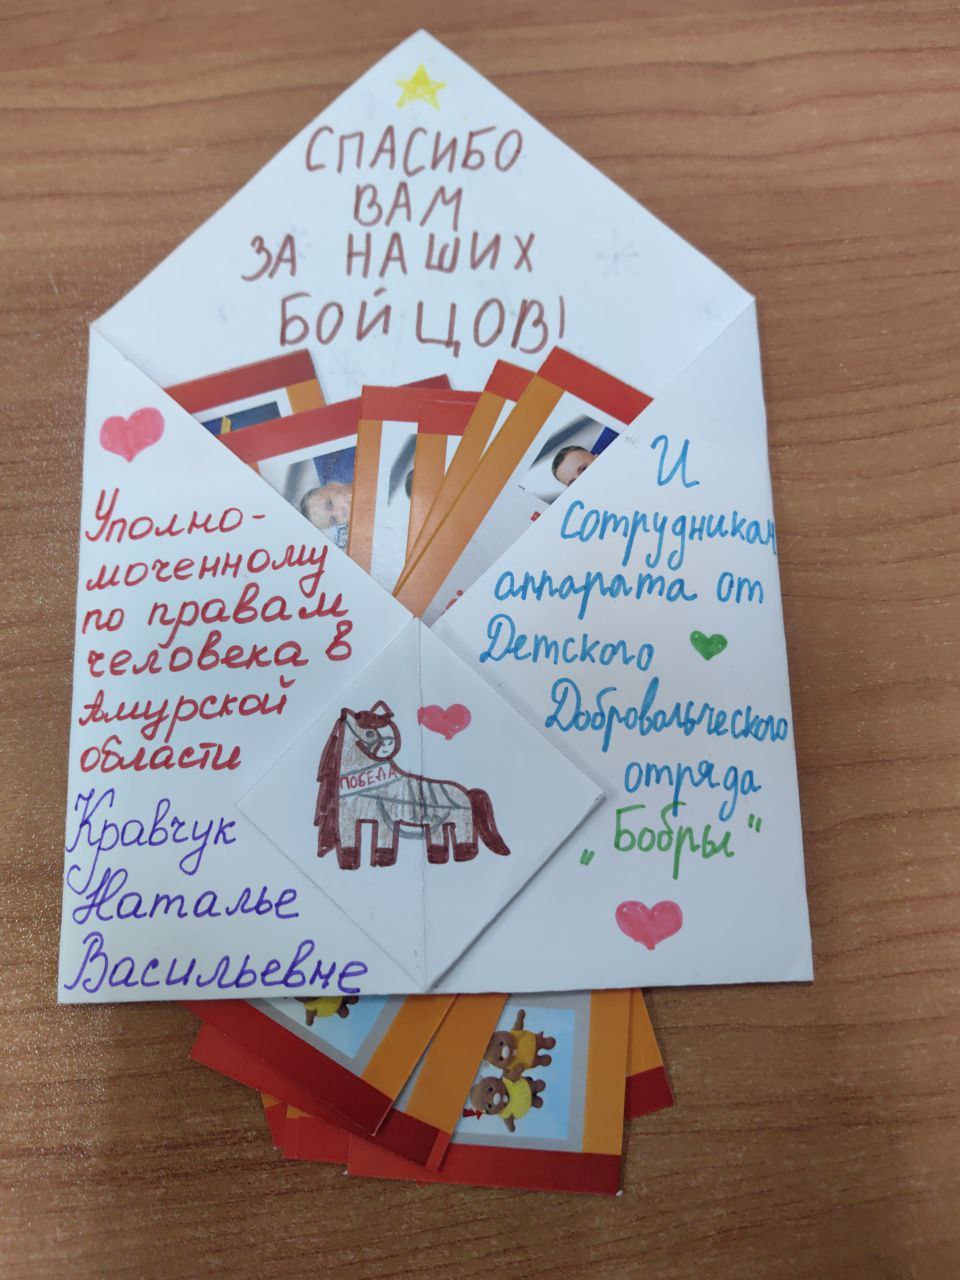 СПАСИБО
ВАМ
ЗА НАШИХ
БОЙЦОВ!
Уполно-
моченному
по правам
человека в
Амурской
области
Кравчук
Наталье
Васильевне
И
Сотрудникам
аппарата от
Детского
Добровольческого
отряда
„Бобры"
ПОБЕДА